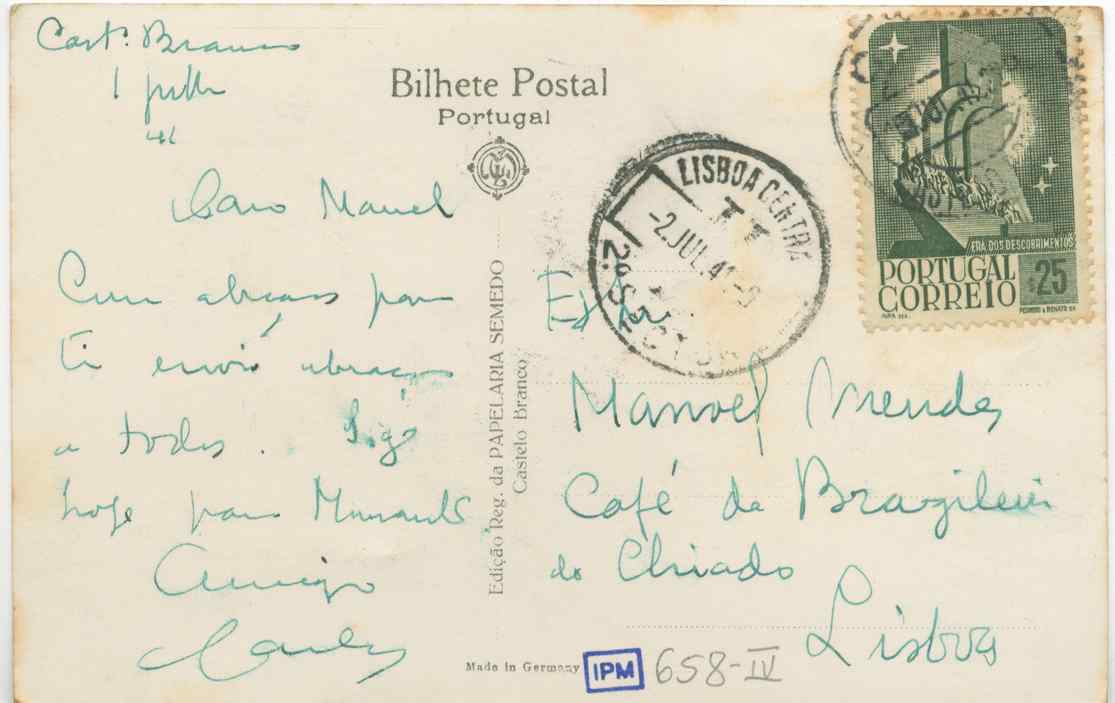 Castº. Branco
1 julho
41
Bilhete Postal
Portugal
Caro Manuel
Com abraços para
ti envio abraços
a todos. Sigo
hoje para
Amigo
Edição Reg. da PAPELARIA SEMEDO
Castelo Branco
LISBOA CENTRAL
-2.JUL.41
2º S
ERA DOS DESCOBRIMENTOS
PORTUGAL
CORREIO
$25
Manuel Mendes
Café da Brazileira
do Chiado
Lisboa
Made in Germany
IPM
658-IV